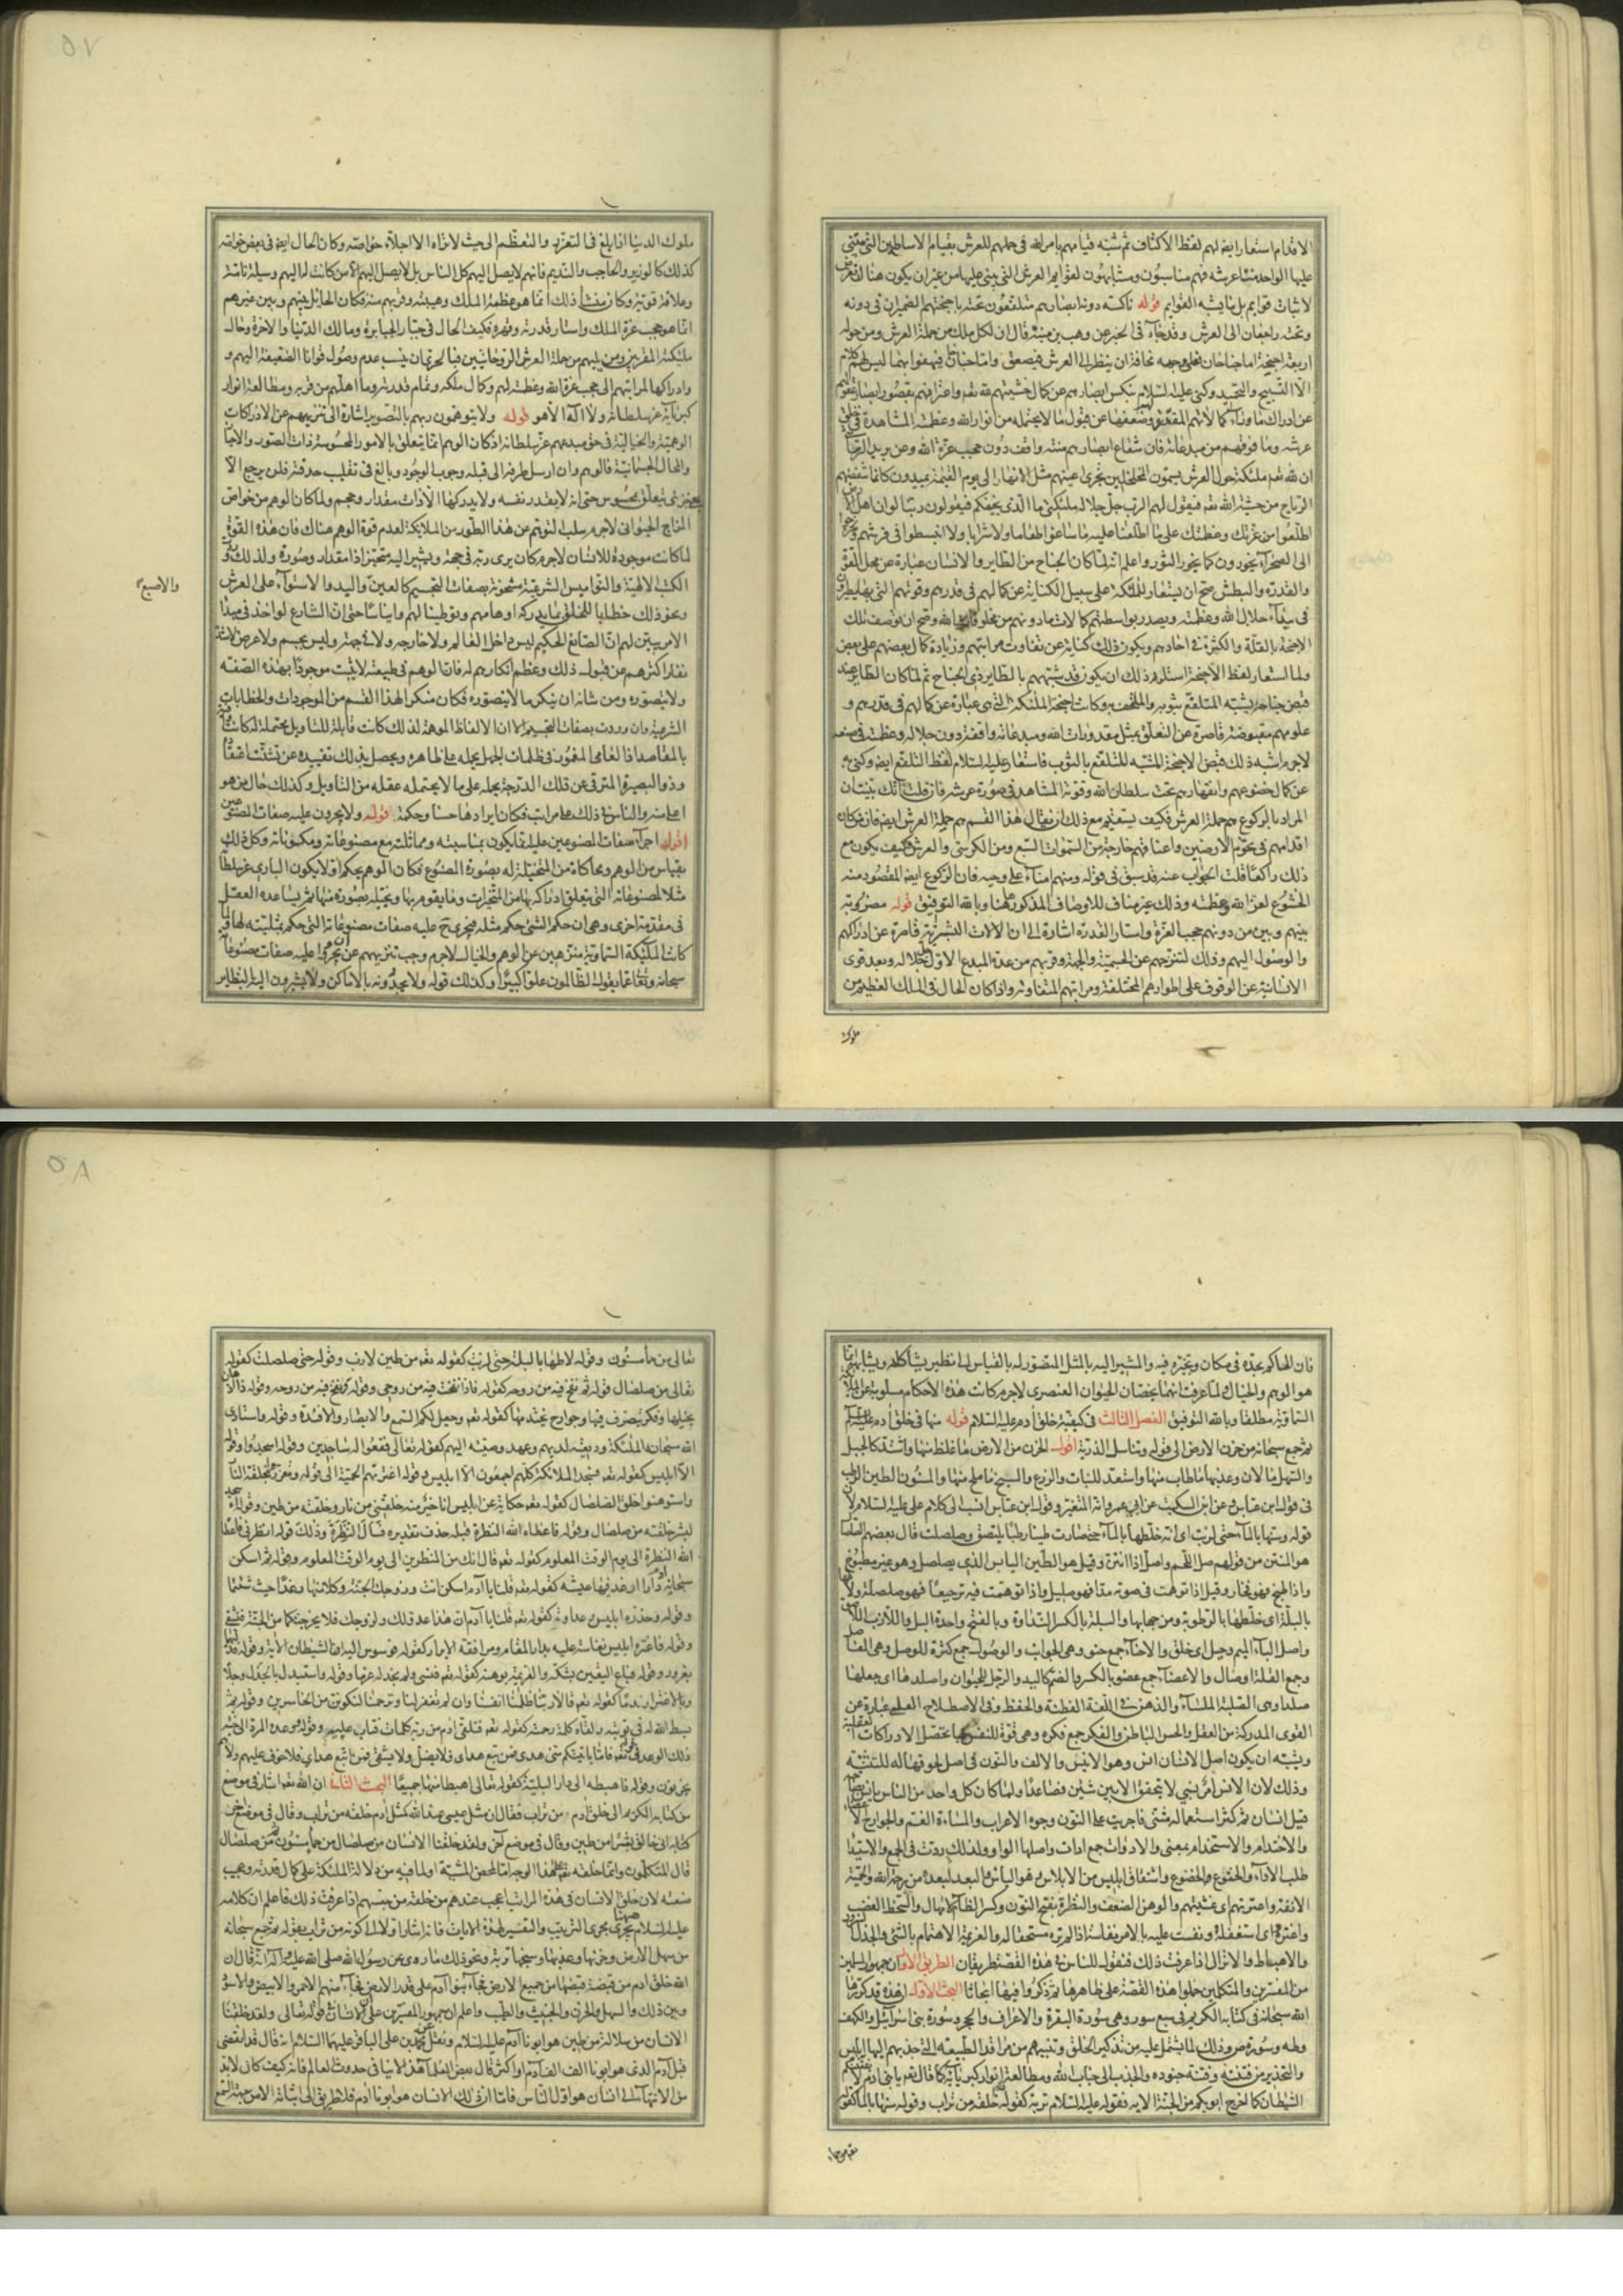 الاقدام استعار ايضا لهم لفظ الاكتاف ثم شبه قيامهم بامر الله في حملهم للعرش بقيام الاساطين التي يبتنى
عليها الواحد منا عرشه فهم مناسبون ومشابهون لقوايم العرش التي يبنى عليها من غير ان يكون هناك تعرض
لاثبات قوايم بل ما يشبه القوايم قوله ناكسة دونه ابصارهم متلفعون تحته باجنحتهم الضميران في دونه
وتحته راجعان الى العرش وقد جاء في الخبر عن وهب بن منبه قال ان لكل ملك من حملة العرش ومن حوله
اربعة اجنحة اما جناحان فعلى وجهه مخافة ان ينظر الى العرش فيصعق واما جناحان فيهفوا بهما ليس لهم كلام
الا التسبيح والتحميد وكنى عليه السلام بنكس ابصارهم عن كمال خشيتهم لله تعه واعترافهم بقصور ابصار عقولهم
عن ادراك ما وراء كمالاتهم المقدرة وضعفها عن قبول ما لا يحتمله من انوار الله وعظمته المشاهدة في خلق
عرشه وما فوقهم من مبدعاته فان شعاع ابصارهم منته واقف دون حجب عزة الله وعن يزيد الرقاشي
ان لله تعه ملئكة حول العرش يسمون المخلخلين تجري اعينهم مثل الانهار الى يوم القيمة يميدون كانما تنفضهم
الرياح من خشية الله تعه فيقول لهم الرب جل جلاله ملئكتي ما الذي يخيفكم فيقولون ربنا لو ان اهل الارض
اطلعوا من عزتك وعظمتك على ما اطلعنا عليه ما ساغوا طعاما ولا شرابا ولا انبسطوا في فرشهم ولخرجوا
الى الصحراء يخورون كما يخور الثور واعلم انه لما كان الجناح من الطاير والانسان عبارة عن محل القوة
والقدرة والبطش صح ان يستعار للملئكة على سبيل الكناية عن كمالهم في قدرهم وقوتهم التي بها يطيرون
في بيداء جلال الله وعظمته ويصدر بواسطتهم كمالات ما دونهم من مخلوقات الله وصح ان توصف تلك
الاجنحة بالقلة والكثرة في احادهم ويكون ذلك كناية عن تفاوت مراتبهم وزيادة كمال بعضهم على بعض
ولما استعار لفظ الاجنحة استلزم ذلك ان يكون قد شبههم بالطاير ذي الجناح ثم لما كان الطاير عند
قبض جناحه يشبه المتلفع بثوبه والملتحف به وكانت اجنحة الملئكة التي هي عبارة عن كمالهم في قدرهم و
علومهم مقبوضة قاصرة عن التعلق بمثل مقدورات الله ومبدعاته واقفة دون جلاله وعظمته في صنعه
لاجرم اشبه ذلك قبض الاجنحة المشبه للمتلفع بالثوب فاستعار عليه السلام لفظ التلفع ايضا وكنى به
عن كمال خضوعهم وانقهارهم تحت سلطان الله وقوته المشاهد في صورة عرشه فان قلت انك بينت ان
المراد بالركوع هم حملة العرش فكيف يستقيم مع ذلك ان يقال هذا القسم هم حملة العرش ايضا فان من كان
اقدامهم في تخوم الارضين واعناقهم خارجة من السموات السبع ومن الكرسي والعرش كيف يكون مع
ذلك راكعا قلت الجواب عنه قد سبق في قوله ومنهم امناء على وحيه فان الركوع ايضا المقصود منه
الخشوع لعز الله وعظمته وذلك غير مناف للاوصاف المذكورة ههنا وبالله التوفيق قوله مضروبة
بينهم وبين من دونهم حجب العزة واستار القدرة اشارة الى ان الالات البشرية قاصرة عن ادراكهم
والوصول اليهم وذلك لتنزههم عن الجسمية والجهة وقربهم من عزة المبدع الاول جل جلاله وبعد قوى
الانسانية عن الوقوف على اطوارهم المختلفة ومراتبهم المتفاوتة واذا كان الحال في الملك العظيم من
ملوك
ملوك الدنيا اذا بلغ في التعزز والتعظم الى حيث لا يراه الا اجلاء خواصه وكان الحال ايضا في بعض خواصه
كذلك كالوزير والحاجب والنديم فانهم لا يصل اليهم كل الناس بل لا يصل اليهم الا من كانت له اليهم وسيلة تامة
وعلاقة قوية وكان منشأ ذلك انما هو عظمة الملك وهيبته وقربهم منه فكان الحائل بينهم وبين غيرهم
انما هو حجب عزة الملك واستار قدرته وقهره فكيف الحال في جبار الجبابرة ومالك الدنيا والاخرة وحال
ملئكته المقربين ومن يليهم من حملة العرش الروحانيين فبالحري ان ينسب عدم وصول قوانا الضعيفة اليهم و
وادراكها لمراتبهم الى حجب عزة الله وعظمته لهم وكمال ملكه وتمام قدرته وما اهلهم من قربه ومطالعة انوار
كبريائه عز سلطانه ولا اله الا هو قوله ولا يتوهمون ربهم بالتصوير اشارة الى تنزيههم عن الادراكات
الوهمية والخيالية في حق مبدعهم عز سلطانه اذ كان الوهم انما يتعلق بالامور المحسوسة ذات الصور والاحياز
والمحال الجسمانية فالوهم وان ارسل طرفه الى قبلة وجوب الوجود وبالغ في تقليب حدقته فلن يرجع الا
بمعنى جزئي يتعلق بمحسوس حتى انه لا يقدر نفسه ولا يدركها الا ذات مقدار وحجم ولما كان الوهم من خواص
المزاج الحيواني لاجرم سلب التوهم عن هذا الطور من الملايكة لعدم قوة الوهم هناك فان هذه القوة
لما كانت موجودة للانسان لاجرم كان يرى ربه في جهة ويشير اليه متحيزا ذا مقدار وصورة ولذلك
الكتب الالهية والنواميس الشرعية مشحونة بصفات التجسيم كالعين واليد والاستواء على العرش
والاصبع
ونحو ذلك خطابا للخلق بما يدركه اوهامهم وتوطينا لهم وايناسا حتى ان الشارع لو اخذ في مبدا
الامر يبين لهم ان الصانع الحكيم ليس داخل العالم ولا خارجه ولا في جهة وليس بجسم ولا عرض لاشتد
نفار اكثرهم من قبول ذلك وعظم انكارهم له فان الوهم في طبيعته لا يثبت موجودا بهذه الصفة
ولا يتصوره ومن شانه ان ينكر ما لا يتصوره فكان منكرا لهذا القسم من الموجودات والخطابات
الشرعية وان وردت بصفات التجسيم الا ان الالفاظ الموهمة لذلك كانت قابلة للتاويل محتملة له كانت وافية
بالمقاصد اذ العامي المغمور في ظلمات الجهل يحمله على ظاهره ويحصل بذلك تقييده عن تشتت اعتقاده
وذو البصيرة المترقي عن تلك الدرجة يحمله على ما لا يحتمله عقله من التاويل وكذلك حال من هو
اعلى منه والناس في ذلك على مراتب فكان ايرادها حسنا وحكمة قوله ولا يجرون عليه صفات المصنوعين
اقول اجراء صفات المصنوعين عليه انما يكون بمناسبته ومماثلته مع مصنوعاته ومكوناته وكل ذلك
بقياس من الوهم ومحاكاة من المتخيلة له بصورة المصنوع فكان الوهم يحكم اولا بكون الباري عز سلطانه
مثلا لمصنوعاته التي يتعلق ادراكه بها من المتحيزات وما يقوم بها ويخيله بصورة منها ثم يساعده العقل
في مقدمة اخرى وهي ان حكم الشيء حكم مثله فيجري ح عليه صفات مصنوعاته التي حكم بمثليته لها ولما
كانت الملئكة السماوية منزهين عن الوهم والخيال لاجرم وجب تنزيههم عن ان يجروا عليه صفات مصنوعاته
سبحانه وتعالى عما يقول الظالمون علوا كبيرا وكذلك قوله ولا يحدونه بالاماكن ولا يشيرون اليه بالنظاير
فان الحاكم بحده في مكان وتحيزه فيه والمشير اليه بالمثل المتصور له بالقياس الى نظير يشاكله ويشابهه انما
هو الوهم والخيال لما عرفت انهما يخصان الحيوان العنصري لاجرم كانت هذه الاحكام مسلوبة عن الملئكة
السماوية مطلقا وبالله التوفيق الفصل الثالث في كيفية خلق ادم عليه السلام قوله منها في خلق ادم عليه السلم
ثم جمع سبحانه من حزن الارض الى قوله وتناسل الذرية اقول الحزن من الارض ما غلظ منها واشتد كالجبل
والسهل ما لان وعذبها ما طاب منها واستعد للنبات والزرع والسبخ ما ملح منها والمسنون الطين الرطب
في قول ابن عباس وعن ابن السكيت عن ابي عمرو انه المتغير وقول ابن عباس انسب الى كلام علي عليه السلام لان
قوله وسنها بالماء حتى لزبت اي انه خلطها بالماء حتى صارت طينا رطبا يلتصق وصلصلت قال بعضهم الصلصال
هو المنتن من قولهم صل اللحم واصل اذا انتن وقيل هو الطين اليابس الذي يصلصل وهو غير مطبوخ
واذا طبخ فهو فخار وقيل اذا توهمت في صوته مدا فهو صليل واذا توهمت فيه ترجيعا فهو صلصلة ولاطها
بالبلة اي خلطها بالرطوبة ومزجها بها والبلة بالكسر النداوة وبالفتح واحدة البل واللازب اللاصق
واصل الباء الميم وجبل اي خلق والاحناء جمع حنو وهي الجوانب والوصول جمع كثرة للوصل وهي المفاصل
وجمع القلة اوصال والاعضاء جمع عضو بالكسر والضم كاليد والرجل للحيوان واصلدها اي جعلها
صلدا وهي الصلبة الملساء والذهن في اللغة الفطنة والحفظ وفي الاصطلاح العلمي عبارة عن
القوى المدركة من العقل والحس الباطن والفكر جمع فكرة وهي قوة للنفس بها تحصل الادراكات العقلية
ويشبه ان يكون اصل الانسان انس وهو الانيس والالف والنون في اصل لحوقهما له للتثنية
وذلك لان الانس امر نسبي لا يتحقق الا بين شيئين فصاعدا ولما كان كل واحد من الناس يانس بصاحبه
قيل انسان ثم كثر استعماله مثنى فاجريت على النون وجوه الاعراب والمساءة الغم والجوارح الاعضاء
والاختدام والاستخدام بمعنى والادوات جمع اداة واصلها الواو ولذلك ردت في الجمع والاستيداء
طلب الاداء والخنوع والخضوع واشتقاق ابليس من الابلاس وهو الياس والبعد لبعده من رحمة الله والحمية
الانفة واعترتهم اي غشيتهم والوهن الضعف والنظرة بفتح النون وكسر الظاء الامهال والسخط الغضب
واغتره اي استغفله ونفست عليه بالامر نفاسة اذا لم تره مستحقا له والعزيمة الاهتمام بالشيء والجذل السرور
والاهباط والانزال اذا عرفت ذلك فنقول للناس في هذه القصة طريقان الطريق الاول ان جمهور المسلمين
من المفسرين والمتكلمين حملوا هذه القصة على ظاهرها ثم ذكروا فيها ابحاثا البحث الاول ان هذه القصة قد كررها
الله سبحانه في كتابه الكريم في سبع سور وهي سورة البقرة والاعراف والحجر وسورة بني اسرائيل والكهف
وطه وسورة ص وذلك لما يشتمل عليه من تذكير الخلق وتنبيههم من مراقد الطبيعة التي جذبهم اليها ابليس
والتحذير من فتنته وفتنة جنوده والجذب الى جناب الله ومطالعة انوار كبريائه كما قال تعه يا بني ادم لا يفتننكم
الشيطان كما اخرج ابويكم من الجنة الاية فقوله عليه السلام تربة كقوله تعه خلقه من تراب وقوله سنها بالماء كقوله
تعالى من حمأ مسنون وقوله لاطها بالبلة حتى لزبت كقوله تعه من طين لازب وقوله حتى صلصلت كقوله
تعالى من صلصال قوله ثم نفخ فيه من روحه كقوله فاذا نفخت فيه من روحي وقوله ونفخ فيه من روحه وقوله ذا اذهان
يجيلها وفكر يتصرف فيها وجوارح يختدمها كقوله تعه وجعل لكم السمع والابصار والافئدة وقوله واستادى
الله سبحانه الملئكة وديعته لديهم وعهد وصيته اليهم كقوله تعالى فقعوا له ساجدين وقوله اسجدوا وقوله
الا ابليس كقوله تعه فسجد الملائكة كلهم اجمعون الا ابليس وقوله اعترتهم الحمية الى قوله وتعززوا بخلقة النار
واستوهنوا خلق الصلصال كقوله تعه حكاية عن ابليس انا خير منه خلقتني من نار وخلقته من طين وقوله لم اكن لاسجد
لبشر خلقته من صلصال وقوله فاعطاه الله النظرة قبله حذف تقديره فسأل النظرة وذلك قوله انظرني فاعطاه
الله النظرة الى يوم الوقت المعلوم كقوله تعه قال انك من المنظرين الى يوم الوقت المعلوم وقوله ثم اسكن
سبحانه ادم دارا ارغد فيها عيشه كقوله تعه قلنا يا آدم اسكن انت وزوجك الجنة وكلا منها رغدا حيث شئتما
وقوله وحذره ابليس وعداوته كقوله تعه قلنا يا آدم ان هذا عدو لك ولزوجك فلا يخرجنكما من الجنة فتشقى
وقوله فاغتره ابليس نفاسة عليه بدار المقام ومرافقة الابرار كقوله فوسوس اليه الشيطان الاية وقوله فدلاهما
بغرور وقوله فباع اليقين بشكه والعزيمة بوهنه كقوله تعه فنسي ولم نجد له عزما وقوله واستبدل بالجذل وجلا
وبالاغترار ندما كقوله تعه قالا ربنا ظلمنا انفسنا وان لم تغفر لنا وترحمنا لنكونن من الخاسرين وقوله ثم
بسط الله له في توبته ولقاه كلمة رحمته كقوله تعه فتلقى ادم من ربه كلمات فتاب عليه وقوله ووعده المرد الى جنته
ذلك الوعد في قوله تعه فاما ياتينكم مني هدى فمن تبع هداي فلا يضل ولا يشقى فمن تبع هداي فلا خوف عليهم ولا هم
يحزنون وقوله فاهبطه الى دار البلية كقوله تعالى اهبطا منها جميعا البحث الثاني ان الله تعه اشار في موضع
من كتابه الكريم الى خلق ادم من تراب فقال ان مثل عيسى عند الله كمثل ادم خلقه من تراب وقال في موضع اخر
كقوله اني خالق بشرا من طين وقال في موضع آخر ولقد خلقنا الانسان من صلصال من حمأ مسنون
قال المتكلمون وانما خلقه تعه على هذا الوجه اما لمحض المشية او لما فيه من دلالة الملئكة على كمال قدرته وعجيب
صنعه لان خلق الانسان في هذه المراتب اعجب عندهم من خلقه من جنسهم اذا عرفت ذلك فاعلم ان كلامه
عليه السلام يجري مجرى الترتيب والتفسير لهذه الايات فانه اشار اولا الى كونه من تراب بقوله ثم جمع سبحانه
من سهل الارض وحزنها وعذبها وسبخها تربة ونحو ذلك ما روي عن رسول الله صلى الله عليه وآله انه قال ان
الله خلق ادم من قبضة قبضها من جميع الارض فجاء بنوا آدم على قدر الارض فجاء منهم الاحمر والابيض والاسود
وبين ذلك والسهل والحزن والخبيث والطيب واعلم ان جمهور المفسرين على ان الانسان في قوله تعالى ولقد خلقنا
الانسان من سلالة من طين هو ابونا آدم عليه السلام ونقل عن محمد بن علي الباقر عليهما السلام انه قال قد انقضى
قبل آدم الذي هو ابونا الف الف آدم او اكثر قال بعض العلماء هذا لا ينافي حدوث العالم فانه كيف كان لابد
من الانتهاء الى انسان هو اول الناس فاما ان ذلك الانسان هو ابونا ادم فلا طريق الى اثباته الا من جهة السمع